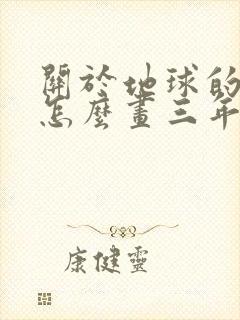 關於地球的
怎麼畫三年
康健靈